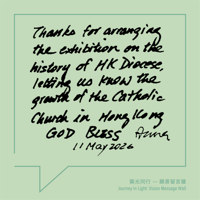 Thanks for arranging
the exhibition on the
history of HK Diocese,
letting us know the
growth of the Catholic
Church in Hong Kong
GOD BLESS
11 May 2026
Journey in Light: Vision Message Wall